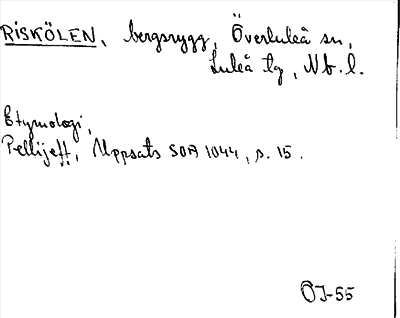 RISKÖLEN, bergsrygg, Överluleå sn,
Luleå tg, Nb. l.
Etymologi,
Pellijeff, Uppsats SOA 1044, s. 15.
ÖJ-55